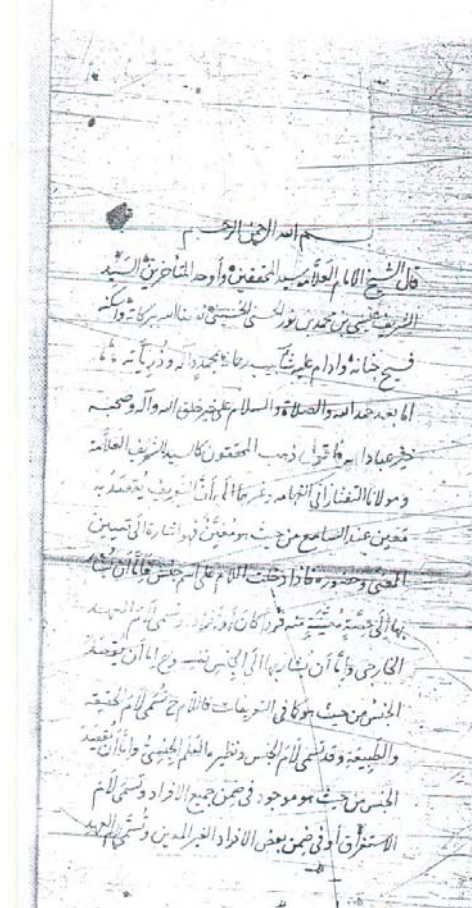 بسم الله الرحمن الرحيم
قال الشيخ الامام العلامة سيد المحققين وأوحد المتأخرين السيد
الشريف عيسى بن محمد بن نور الحسني الحسيني الله ببركاته وأسكنه
فسيح جنانه وادام عليه محمد وآله وذرياته
اما بعد حمد الله والصلاة والسلام على خير خلق الله وآله وصحبه
خير عباد الله فاقول ذهب المحققون كالسيد الشريف العلامة
ومولانا التفتازاني الفهامة وغيرهما الى أن التعريف يقصد به
معين عند السامع من حيث هو معين فهو اشارة الى تعيين
المعنى وحضوره فاذا دخلت اللام على اسم جنس فامّا أن يشار
بها إلى حصة معينة منه فردا كان أو وتسمى لام العهد
الخارجى وامّا أن يشار بها الى الجنس نفسه وح اما أن يقصد
الجنس من حيث هو كما فى التعريفات فاللام ح تسمى لام الحقيقه
والطبيعة وقد تسمى لام الجنس ونظيره العلم الجنسى وامّا أن يقصد
الجنس من حيث هو موجود فى ضمن جميع الافراد وتسمى لام
الاستغراق أو فى ضمن بعض الافراد الغير المعين وتسمى لام العهد